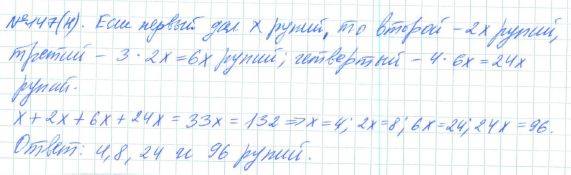 №147(н). Если первый дал x рупий, то второй - 2x рупий,
третий - 3 · 2x = 6x рупий; четвертый - 4 · 6x = 24x
рупий.
x + 2x + 6x + 24x = 33x = 132 => x = 4; 2x = 8; 6x = 24; 24x = 96.
Ответ: 4, 8, 24 и 96 рупий.